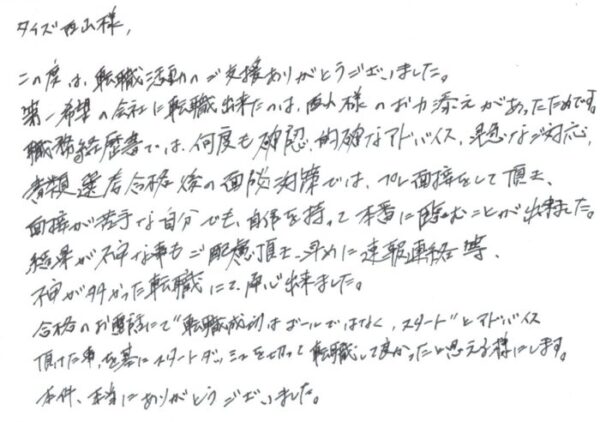 タイズ西山様,
この度は、転職活動のご支援ありがとうございました。
第一希望の会社に転職出来たのは、西山様のお力添えがあったためです。
職務経歴書では、何度も確認、的確なアドバイス、迅速なご対応、
書類選考合格後の面談対策では、プレ面接をして頂き、
面接が苦手な自分でも、自信を持って本番に臨むことが出来ました。
結果が不安な事もご配慮頂き、早めに速報連絡等、
不安が多かった転職にて安心出来ました。
合格のお電話にて"転職成功はゴールではなく、スタート"とアドバイス
頂けた事を基にスタートダッシュを切って転職して良かったと思える様にします。
本件、本当にありがとうございました。